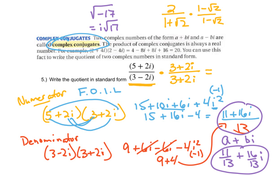 √-17
= i√17
2 / (1+√2) · (1-√2) / (1-√2)
COMPLEX CONJUGATES Two complex numbers of the form a + bi and a − bi are
called complex conjugates. The product of complex conjugates is always a real
number. You can use this
fact to write the quotient of two complex numbers in standard form.
5.) Write the quotient in standard form
(5 + 2i) / (3 − 2i) · (3+2i) / (3+2i) =
Numerator F.O.I.L
(5+2i)(3+2i)
15+10i+6i+4i² (-1)
15+16i-4 =
11+16i / 13
Denominator
(3-2i)(3+2i)
9+6i-6i-4i² (-1)
9+4
a+bi
11/13 + 16/13 i